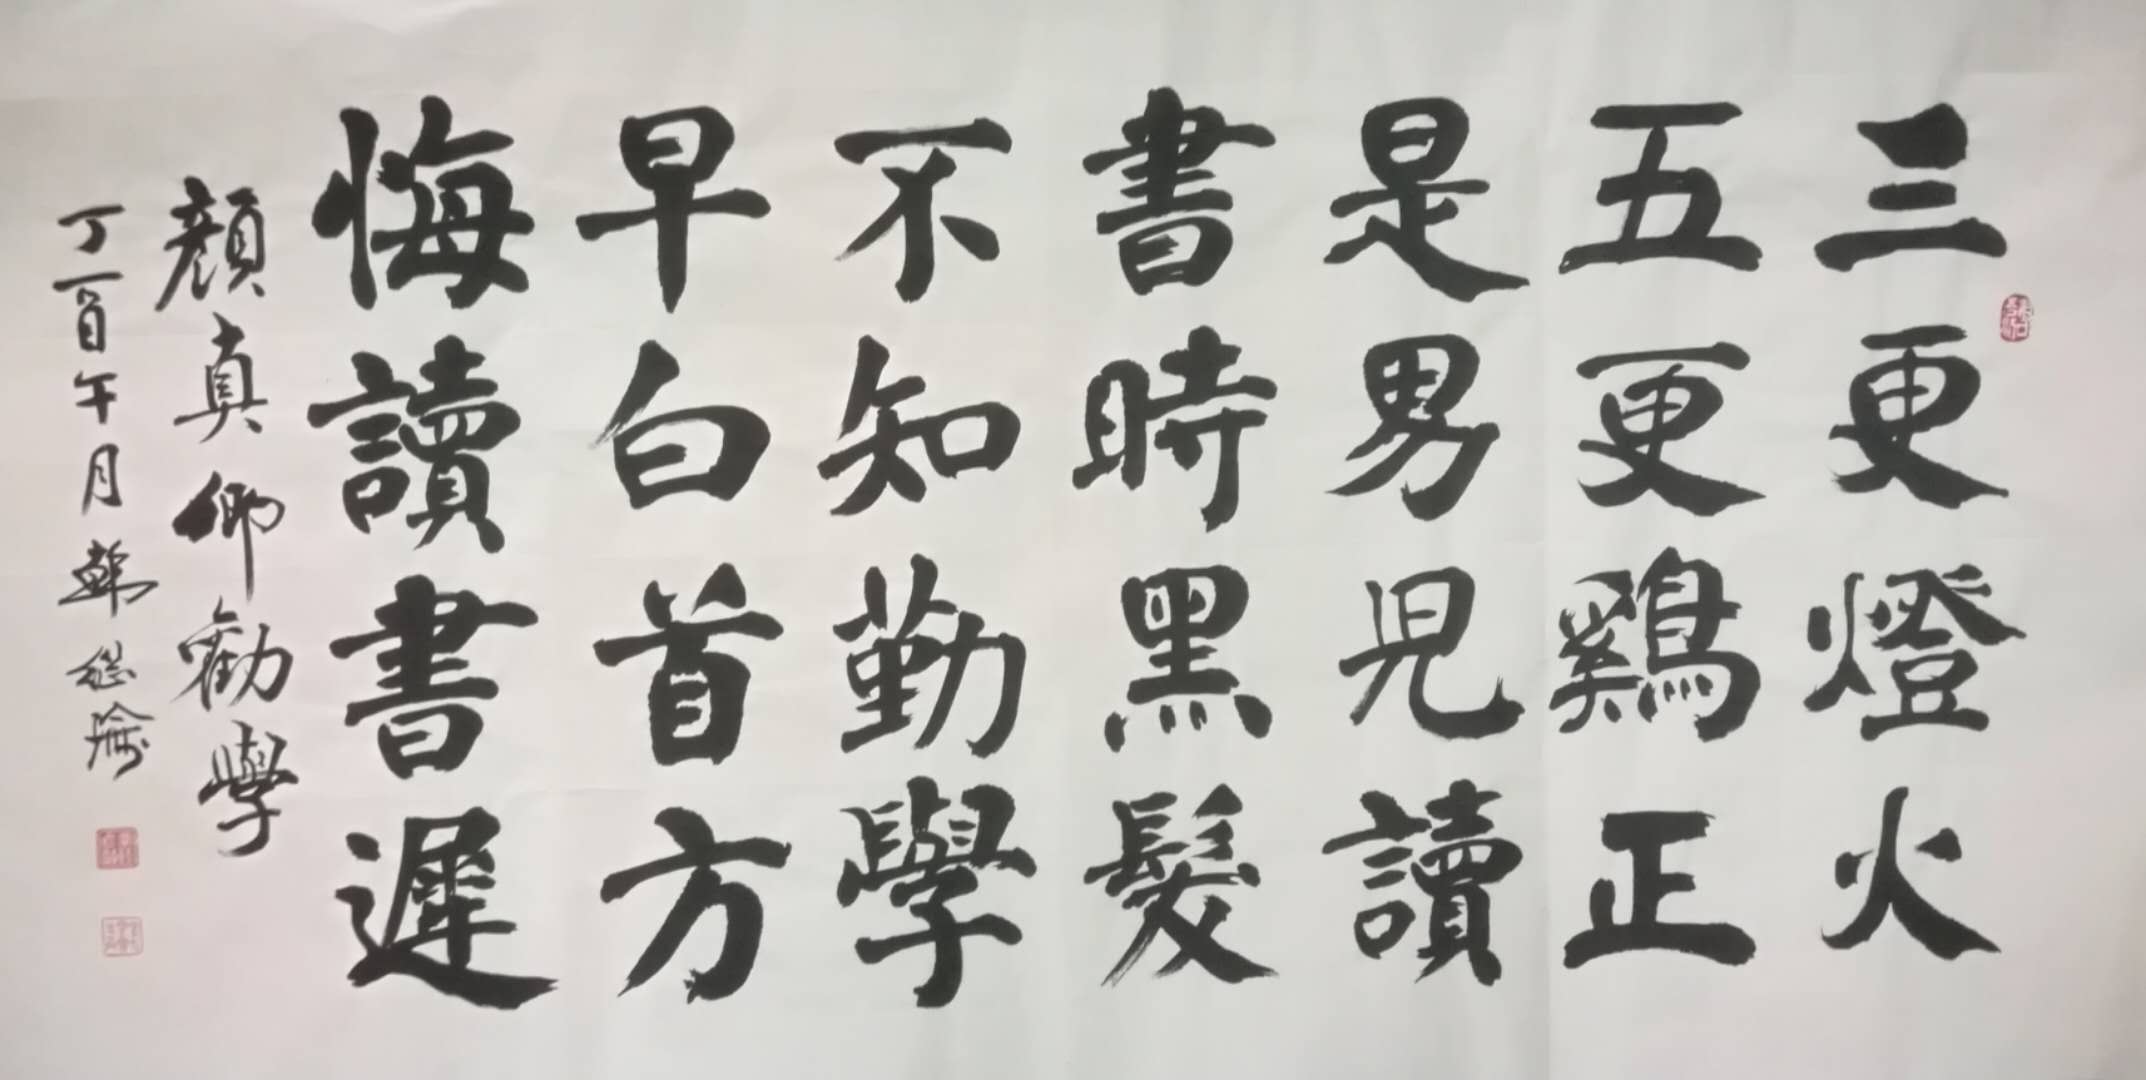 三更燈火
五更鷄正
是男児讀
書時黑髮
不知勤學
早白首方
悔讀書遲
顔真卿勸學
丁酉午月